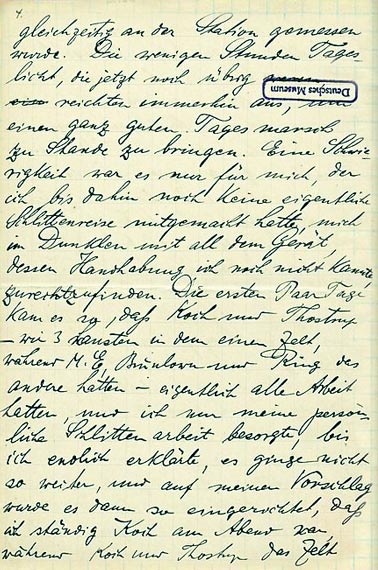 4.
gleichzeitig an der Station gemessen
wurde. Die wenigen Stunden Tages-
licht, die jetzt noch übrig
Deutsches Museum
reichten immerhin aus, um
einen ganz guten Tagesmarsch
zu Stande zu bringen. Eine Schwie-
rigkeit war es nur für mich, der
ich bis dahin noch keine eigentliche
Schlittenreise mitgemacht hatte, mich
im Dunklen mit all dem Gerät,
dessen Handhabung ich noch nicht kannte,
zurechtzufinden. Die ersten Paar Tage
kam es so, daß Koch und Thostrup
– wir 3 hausten in dem einen Zelt,
während M. E, und Ring das
andere hatten – eigentlich alle Arbeit
hatten, und ich nur meine persön-
liche Schlittenarbeit besorgte, bis
ich endlich erklärte, es ginge nicht
so weiter, und auf meinen Vorschlag
wurde es dann so eingerichtet, daß
ich ständig Koch am Abend war,
während Koch und Thostrup das Zelt